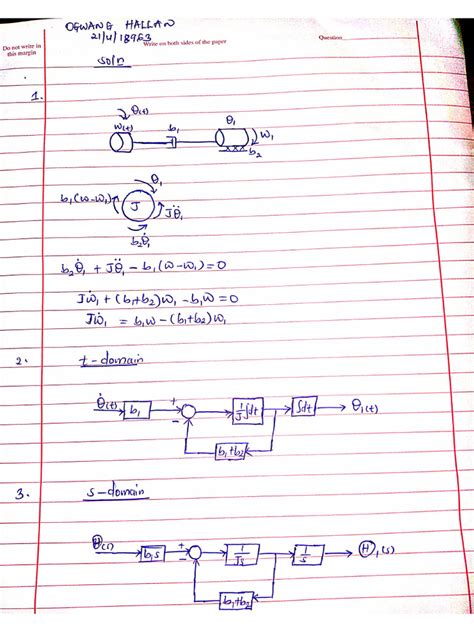 OGWANG HALLAN
21/U/18953
Do not write in this margin
Write on both sides of the paper
Question
soln
1.
θ(t)
w(t) b₁ θ₁ w₁
b₂
θ₁
b₁(w-w₁) J Jθ̈₁
b₂θ̇₁
b₂θ̇₁ + Jθ̈₁ - b₁(w-w₁) = 0
Jẇ₁ + (b₁+b₂)w₁ - b₁w = 0
Jẇ₁ = b₁w - (b₁+b₂)w₁
2. t-domain
θ̇(t) b₁ + - 1/J ∫dt ∫dt θ₁(t)
b₁+b₂
3. s-domain
Θ(s) b₁s + - 1/Js 1/s Θ₁(s)
b₁+b₂